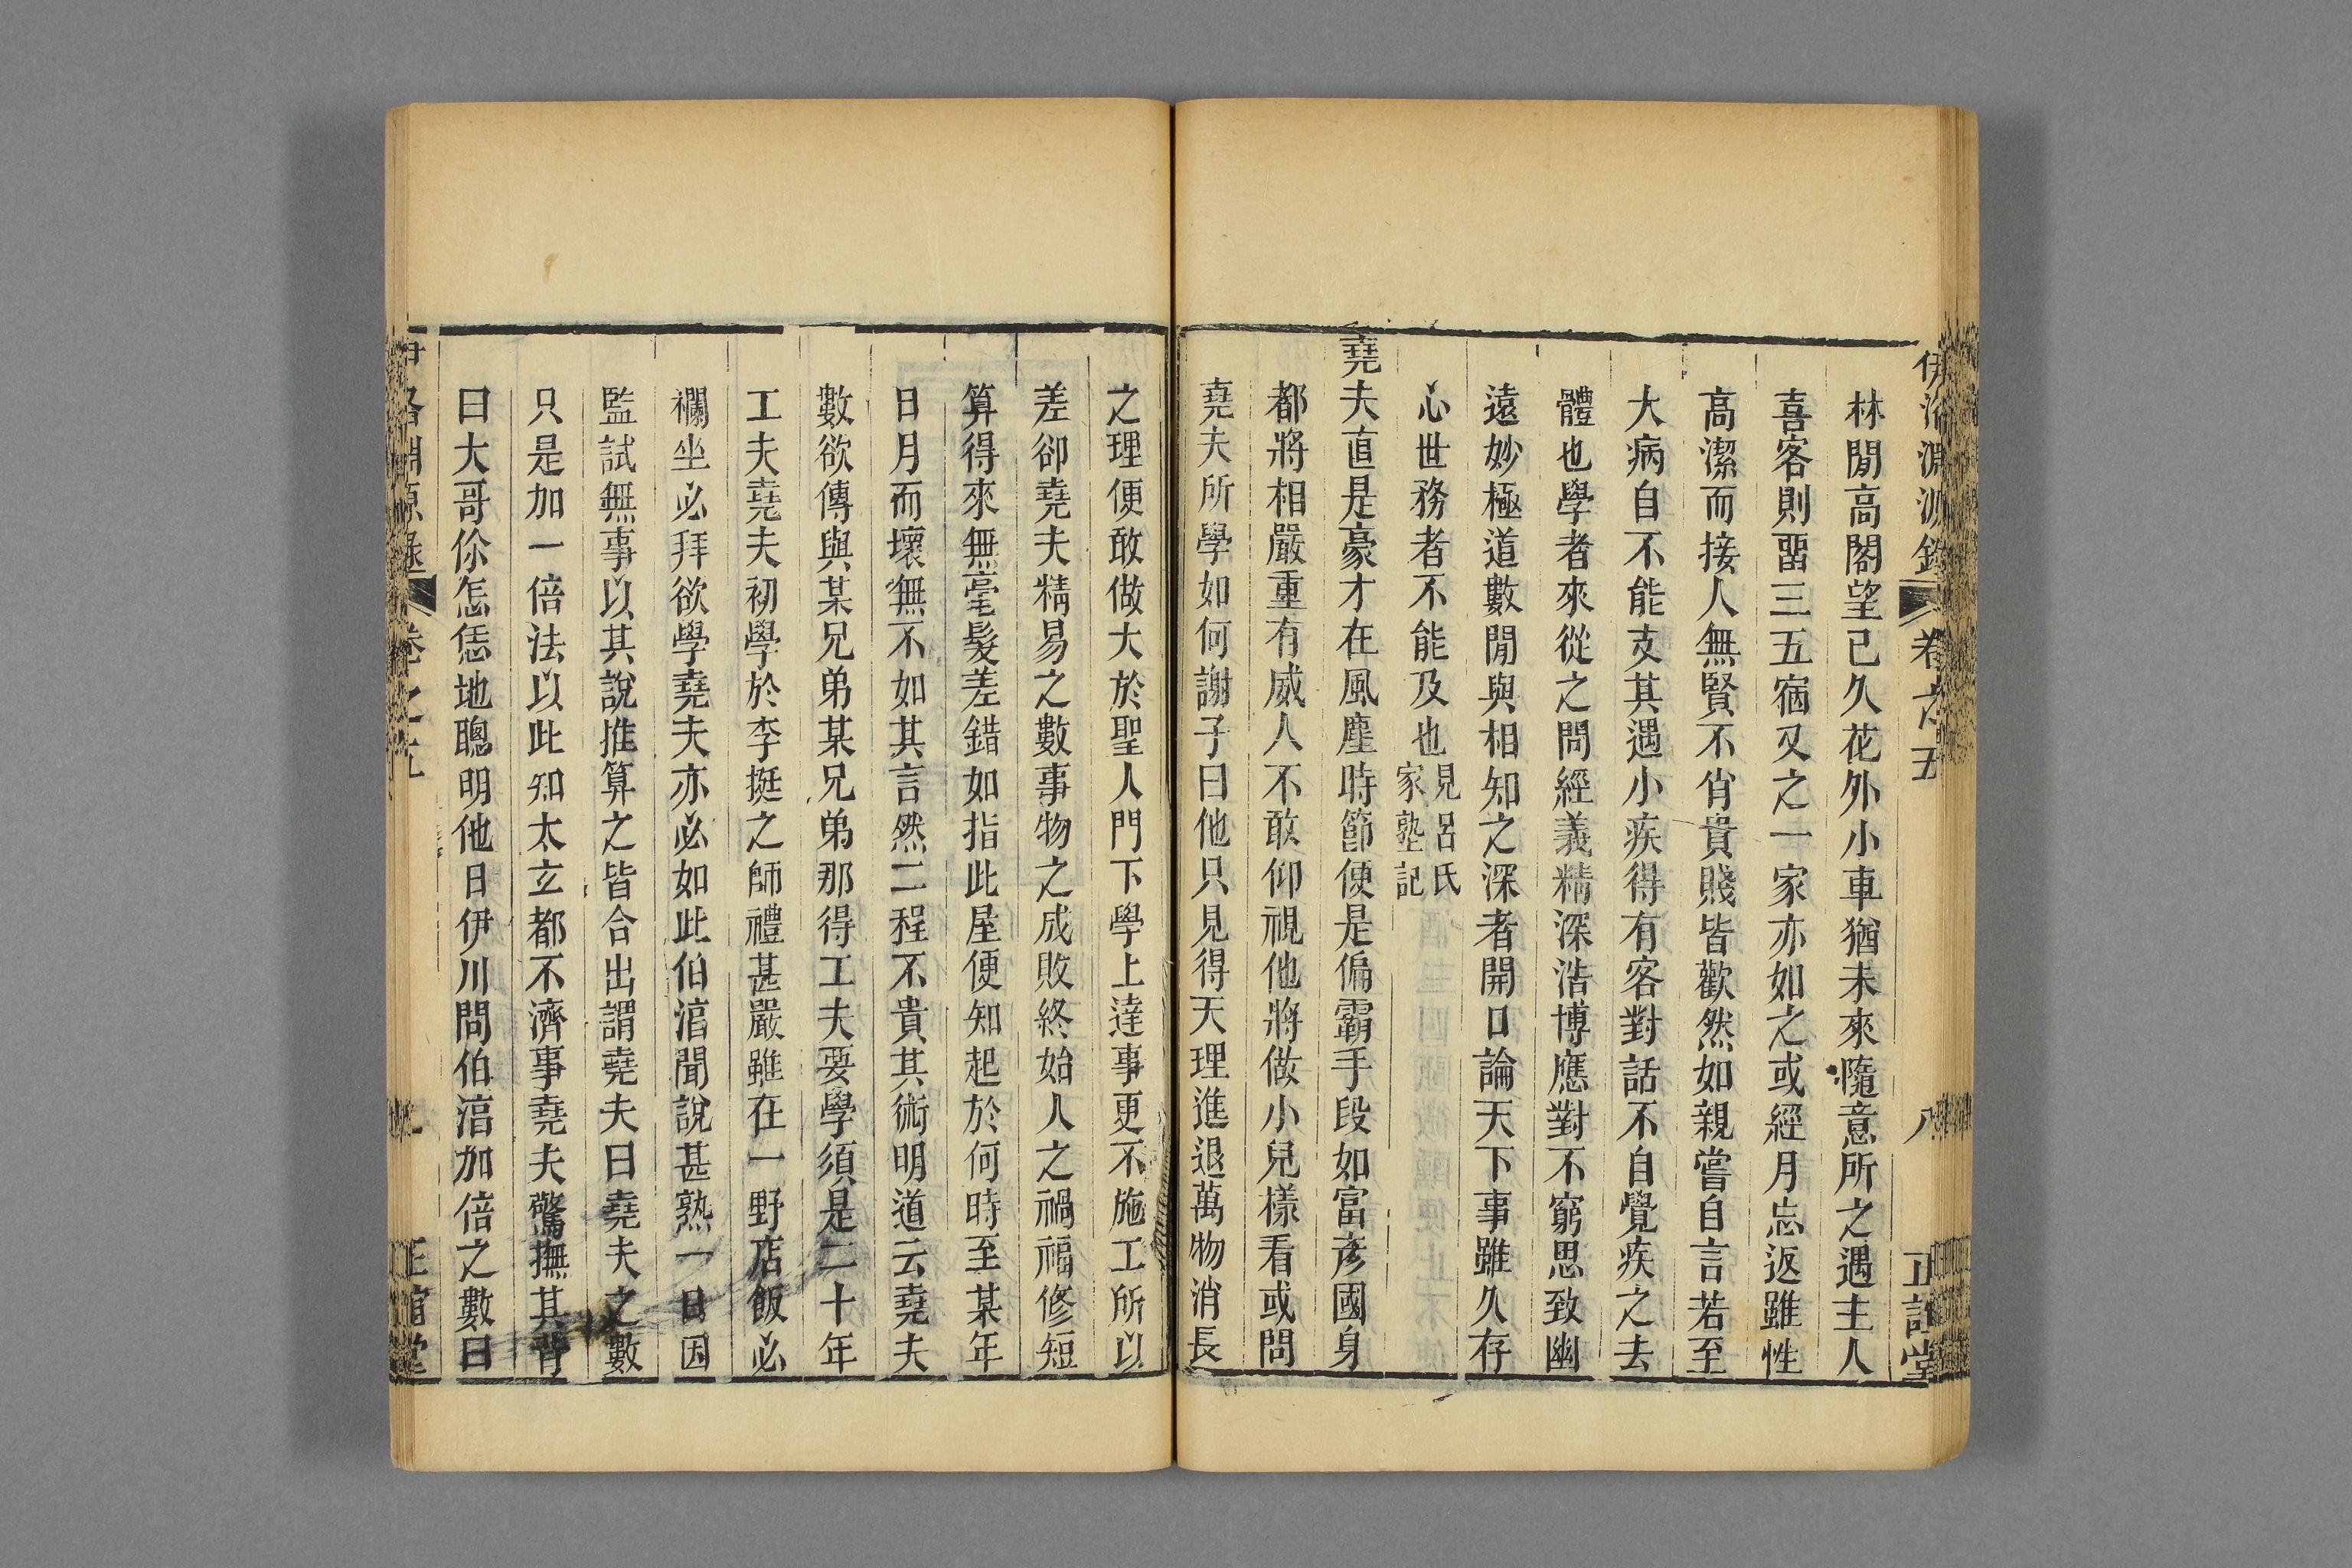 伊洛淵源錄 卷之五 八 正誼堂
林閒高閣望已久花外小車猶未來隨意所之遇主人
喜客則畱三五宿又之一家亦如之或經月忘返雖性
高潔而接人無賢不肖貴賤皆歡然如親嘗自言若至
大病自不能支其遇小疾得有客對話不自覺疾之去
體也學者來從之問經義精深浩博應對不窮思致幽
遠妙極道數閒與相知之深者開口論天下事雖久存
心世務者不能及也見呂氏家塾記
堯夫直是豪才在風塵時節便是偏霸手段如富彥國身
都將相嚴重有威人不敢仰視他將做小兒樣看或問
堯夫所學如何謝子曰他只見得天理進退萬物消長
之理便敢做大於聖人門下學上達事更不施工所以
差卻堯夫精易之數事物之成敗終始人之禍福修短
算得來無毫髮差錯如指此屋便知起於何時至某年
日月而壞無不如其言然二程不貴其術明道云堯夫
數欲傳與某兄弟某兄弟那得工夫要學須是二十年
工夫堯夫初學於李挺之師禮甚嚴雖在一野店飯必
襴坐必拜欲學堯夫亦必如此伯淳聞說甚熟一日因
監試無事以其說推算之皆合出謂堯夫曰堯夫之數
只是加一倍法以此知太玄都不濟事堯夫驚撫其背
曰大哥你怎恁地聰明他日伊川問伯淳加倍之數曰
洛淵源錄 卷之五 正誼堂